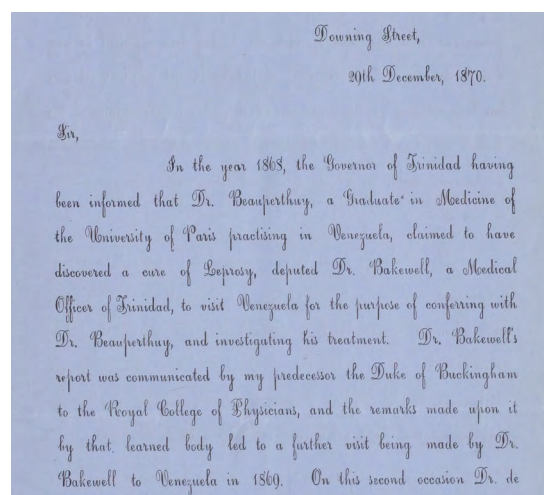 Downing Street,
29th December, 1870.
Sir,
In the year 1868, the Governor of Trinidad having
been informed that Dr. Beauperthuy, a Graduate in Medicine of
the University of Paris practising in Venezuela, claimed to have
discovered a cure of Leprosy, deputed Dr. Bakewell, a Medical
Officer of Trinidad, to visit Venezuela for the purpose of conferring with
Dr. Beauperthuy, and investigating his treatment. Dr. Bakewell's
report was communicated by my predecessor the Duke of Buckingham
to the Royal College of Physicians, and the remarks made upon it
by that learned body led to a further visit being made by Dr.
Bakewell to Venezuela in 1869. On this second occasion Dr. de